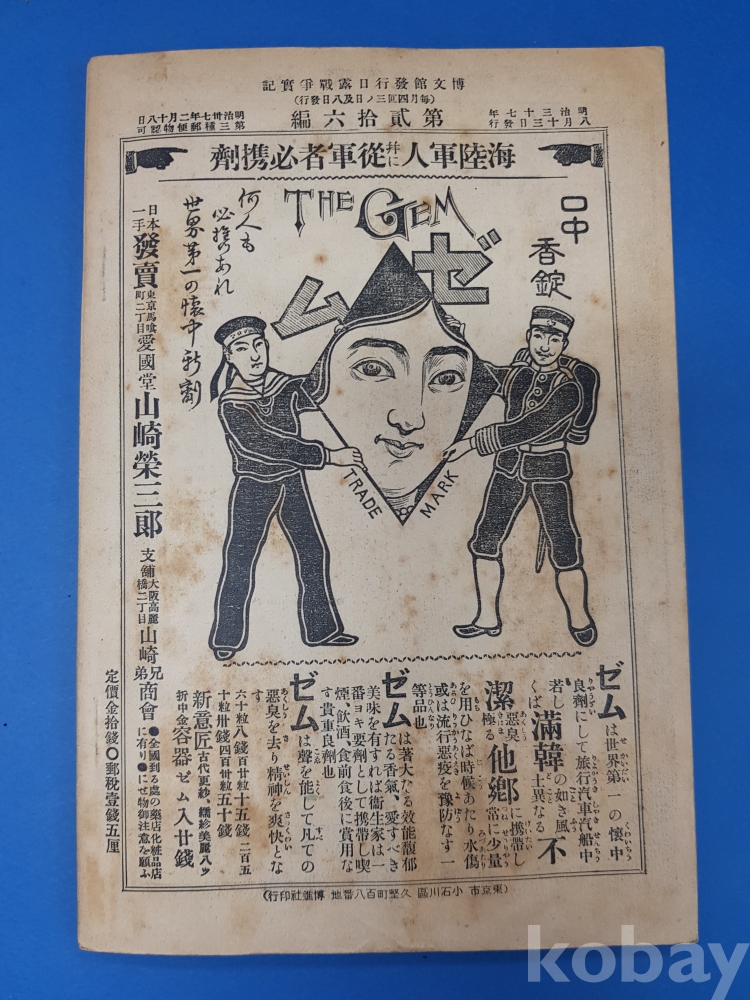 博文館發行日露戰爭實記
(每月四囘三ノ日及八日發行)
第貳拾六編
明治三十七年
八月十三日發行
明治卅七年二月十八日
第三種郵便物認可
海陸軍人幷に從軍者必携劑
THE GEM
ゼム
口中
香錠
何人も
必携のあれ
世界第一の懷中新劑
TRADE MARK
日本一手發賣 東京馬喰町二丁目 愛國堂 山崎榮三郎 支舖 大阪高麗橋二丁目 山崎兄弟商會
●全國到る處の藥店化粧品店に有り●にせ物御注意を願ふ
定價金拾錢○郵税壹錢五厘
ゼムは世界第一の懷中
良劑にして旅行汽車汽船中
若し滿韓の如き風
土異なる不
潔極る他鄕に携帶し
惡臭
常に少量
を用ひなば時候あたり水傷
或は流行惡疫を豫防なす一
等品也
ゼムは著大たる效能馥郁
たる香氣、愛すべき
美味を有すれば衞生家は一
番ヨキ要劑として携帶し喫
煙、飮酒、食前食後に賞用な
す貴重良劑也
ゼムは聲を能して凡ての
惡臭を去り精神を爽快とな
す
六十粒八錢百廿粒十五錢 二百五
十粒卅錢四百卅粒五十錢
新意匠 古代更紗、繻珍美麗八ツ折中金 容器ゼム入廿錢
(東京市小石川區久堅町百八番地 博進社印行)
kobay